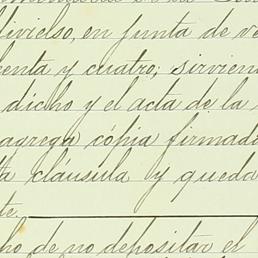 livielso, en junta de ve
enta y cuatro; sirvien
dicho y el acta de la
agrega cópia firmad
la cláusula y queda
te.
ho de no depositar el